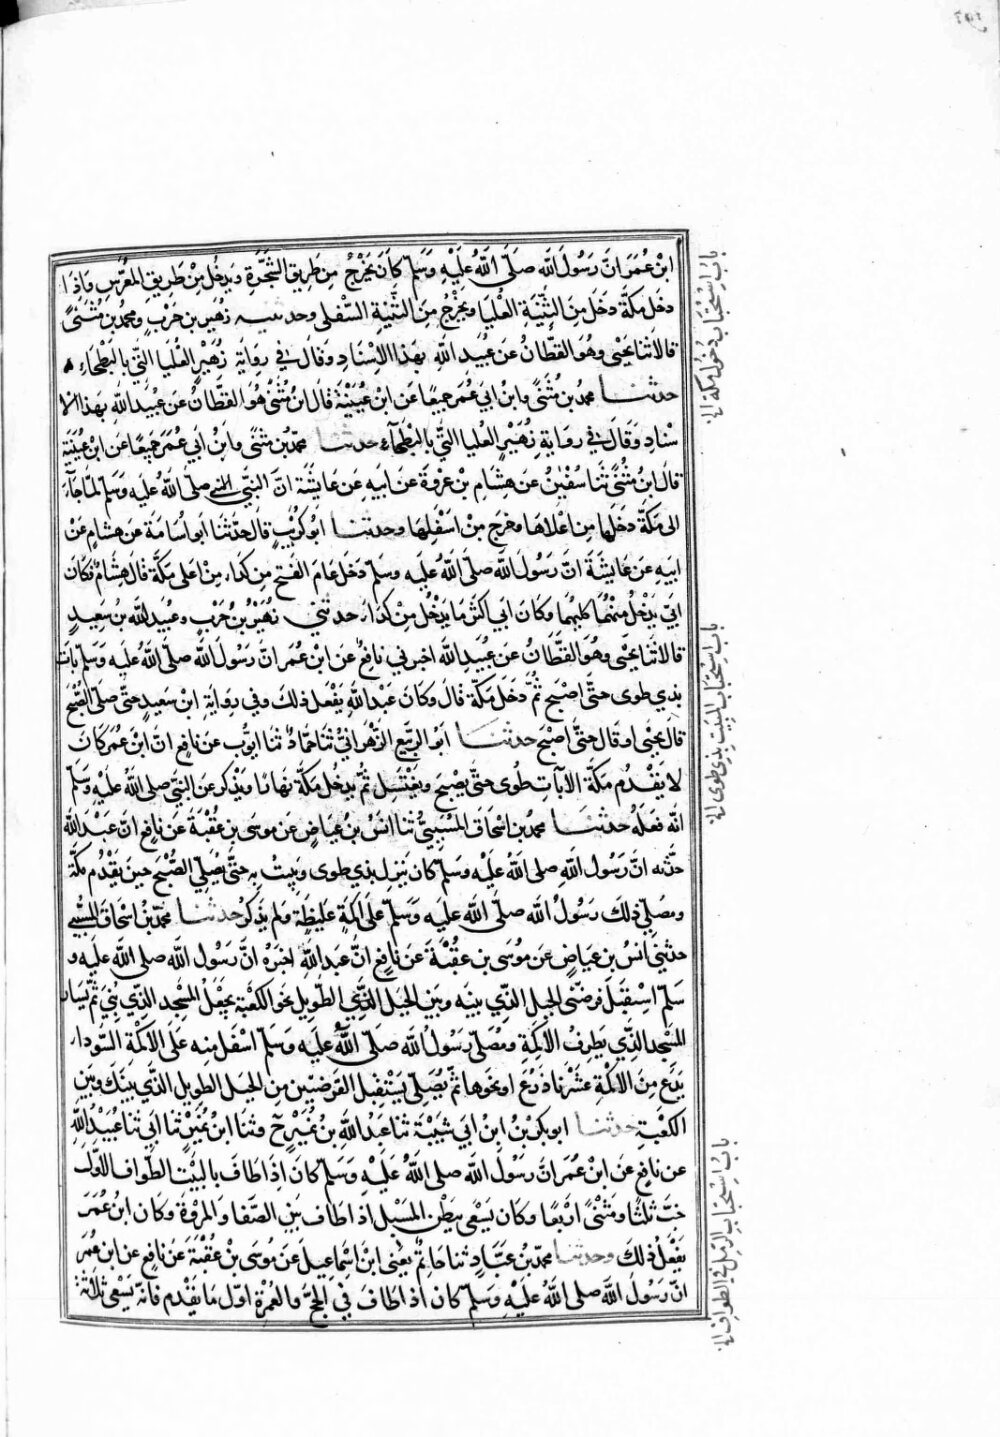 ابْن عُمَرَ انَّ رَسُولَ اللّه صَلَّى اللَّهُ عَلَيْهِ وَسَلَّم كَانَ يَخْرُجُ مِن طَرِيقِ الشَّجَرَةِ وَيَدخُلُ مِنْ طَرِيقِ المعرَّسِ وَاِذَا
دخل مكّةَ دَخَلَ مِنَ الثَّنِيَّةِ العُلْيَا ويخْرُجُ مِنَ الثَّنِيَّةِ السُّفْلى وحدثنيه زهَيْر بن حَرْبٍ ومحمد بن مُثَنىً
قالا ثنا يَحْيٰى وهُوَ القطّانُ عن عُبَيدِ اللَّهِ بهٰذا الاِسْنادِ وَقَال في روايَةِ زُهَيْرٍ العُلْيَا الَّتي بالبَطْحَاءِ
حدثنا محمد بن مُثَنىً وابن ابي عُمَرَ جميعًا عن ابْن عيَيْنَةَ قالَ ابنُ مُثَنىً هُوَ القطّانُ عن عُبيدِ اللَّهِ بهَذا الا
سْنادِ وَقالَ في روايةِ زهَيْرٍ العليا التَّي بالبَطحَآءِ حدثنا محمّد بن مثنىً وَابنُ ابي عُمَرَ جميعًا عن ابْن عيَينَةَ
قال ابنُ مُثنىً ثنا سُفْيٰنُ عَن هِشَامِ بن عُروَةَ عن ابيهِ عن عايشَةَ انّ النَبّي صلى اللَّهُ عليه وَسَلّم لمّا جَآءَ
الى مَكّةَ دَخَلَها مِن اعْلاهَا وخرج مِنْ اسْفلِها وحدثنا ابو كُرَيْبٍ قال حدّثنَا ابو اسُامَةَ عن هِشامٍ عَنْ
ابيهِ عن عَايشَةَ انّ رسُولَ اللَّه صلّى اللَّهُ عليه وسلّم دَخل عَامَ الفَتحِ مِن كَداء مِنْ اعلى مَكّةَ قالَ هِشَامٌ فكَانَ
ابي يَدْخُلُ منْهُمَا كليْهِمَا وكَانَ ابي اكثَرَ مَا يَدْخُلُ مِنْ كَدَاءٍ حدثني زهَيْرُ بْن حَرْبٍ وعبيدُ اللَّهِ بن سَعِيدٍ
قالا ثنا يحيٰى وهُوَ القطّانُ عن عُبَيدِ اللَّهِ اخبرني نافِعٌ عَن ابن عُمَرَ انَّ رَسُولَ اللَّهِ صلّى اللَّهُ عليه وَسَلم بَاتَ
بذي طوى حتّى اصْبَحَ ثُمّ دَخَلَ مَكّةَ قال وكَانَ عَبْد اللَّهِ يَفْعَلُ ذلكَ وفي روايَةِ ابْن سَعيدٍ حتّى صَلّى الصُّبْحَ
قال يَحيٰى او قال حتىّ اصْبَحَ حدثنا ابو الرَّبيعِ الزَّهْرانيُّ ثنا حَمّادٌ ثنا ايوّبُ عن نَافِعٍ انّ ابن عُمَرَ كانَ
لا يَقْدُم مَكّةَ الّا بَاتَ بذي طُوى حتّى يصْبِحَ ويَغتَسِلَ ثُمَّ يَدخُل مَكّةَ نهَارًا ويَذكُر عن النَبّي صلى اللَّهُ عليْهِ وَسَلّمَ
انّه فعَلهُ حدثنا محمد بن اسْحَاقَ المسَيَّبيُّ ثنا انسُ بْنُ عِيَاضٍ عن مُوسَى بن عُقْبَةَ عن نافِعٍ انّ عَبْدَ اللَّه
حدَّثه انَّ رَسُول اللَّهِ صلى اللَّهُ عَلَيْهِ وَسَلّم كان يَنزِلُ بذي طوى وَيَبيتُ بِهِ حتّى يُصَلّيَ الصُّبْحَ حين يَقْدُم مكّةَ
ومصَلّى ذلكَ رَسُولُ اللَّهِ صلّى اللَّه عليه وَسَلّم عَلى اكمَةٍ غليظَةٍ وَلم يَذكُر حدثنا محمّد بنُ اسْحَاقَ المسيَّبي
حدثني انسُ بن عِياضٍ عن مُوسَى بن عقْبَةَ عن نافِعٍ انّ عَبد اللَّهِ اخبَرهُ انّ رَسُول اللَّه صلى اللَّه عليه و
سَلم اسْتقبَلَ فرضَتَي الجبل الذي بينَه وبين الجَبَل الذّي الطّويل نحوَ الكَعْبَةِ يجعَلُ المسْجدَ الذّي بُنِيَ ثَمّ يَسَارَ
المسْجد الذّي بطرفِ الاكمَةِ ومُصَلّى رَسُولُ اللَّهِ صَلّى اللَّهُ عليه وَسَلمَ اسْفَل مِنه عَلى الاكمَةِ السّوداءِ
يَدَعُ مِنَ الاكمَةِ عَشْرَ اذرُعَ او نحَوها ثمّ يُصَلّى يَسْتَقبِلُ الفرضَتَين مِن الجبَل الطوِيل الذّي بَيْنَكَ وبَين
الكَعْبةِ حدثنا ابو بكرْ بْنُ ابن ابي شيْبَةَ ثنا عَبدُ اللَّهِ بن نُمَيْرٍ حَ وثنا ابنُ نُمَيْرٍ ثنا ابي ثنا عُبَيْدُ اللَّهِ
عن نَافِعٍ عن ابْن عُمَرَ انّ رَسُولَ اللَّه صلى اللَّهُ عليْهِ وَسَلّم كانَ اِذا طَافَ بالبَيْتِ الطّوافَ الاَوّلَ
خَبّ ثَلثًا ومَشَىٰ ارْبَعًا وكَان يَسْعى بِبَطْنِ المَسِيْلِ اذا طافَ بَيْن الصَّفا وَالمروَةِ وكَانَ ابنُ عُمَرَ
يَفْعَلُ ذلكَ وحدثنا محمّد بن عبّادٍ ثنا حاتِمٌ يعْني ابْنَ اِسْمَاعِيلَ عن مُوسَى بنْ عُقْبَةَ عن نافِعٍ عن ابن عُمَرَ
انّ رَسُولَ اللَّه صلى اللَّهُ عَلَيْهِ وَسَلّم كان اذا طَافَ في الحَجِّ والعُمْرَةِ اوّل مَا يَقْدم فانّه يَسْعٰى ثَلَاثَةَ
باب اِسْتحْبَاب دُخول مكة الخ
باب استحْبَاب المَبيْتِ بذي طوى الخ
باب اِسْتحبَاب الرّمل في الطواف الخ